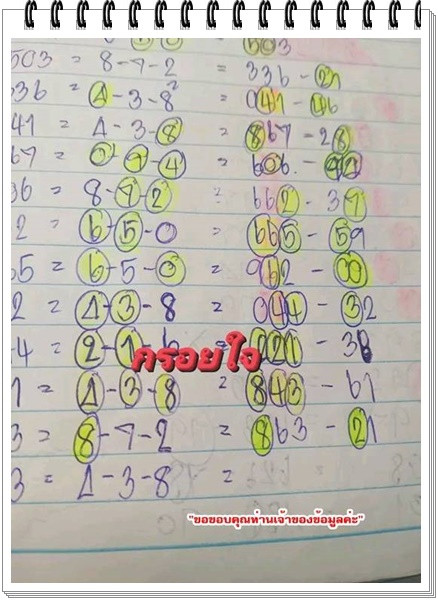 503
503 = 8-7-2 = 336 - 21
336 = 1-3-8 = 041 - 46
41 = 1-3-8 = 867 - 28
67 = 0-7-4 = 606 -
06 = 8-7-2 = 662 - 37
2 = 6-5-0 = 665 - 59
5 = 6-5-0 = 962 - 00
2 = 1-3-8 = 044 - 32
4 = 2-1-6 = 221 - 38
กรอยใจ
1 = 1-3-8 = 843 - 61
3 = 8-7-2 = 863 - 21
3 = 1-3-8 =
"ขอขอบคุณท่านเจ้าของข้อมูลค่ะ"